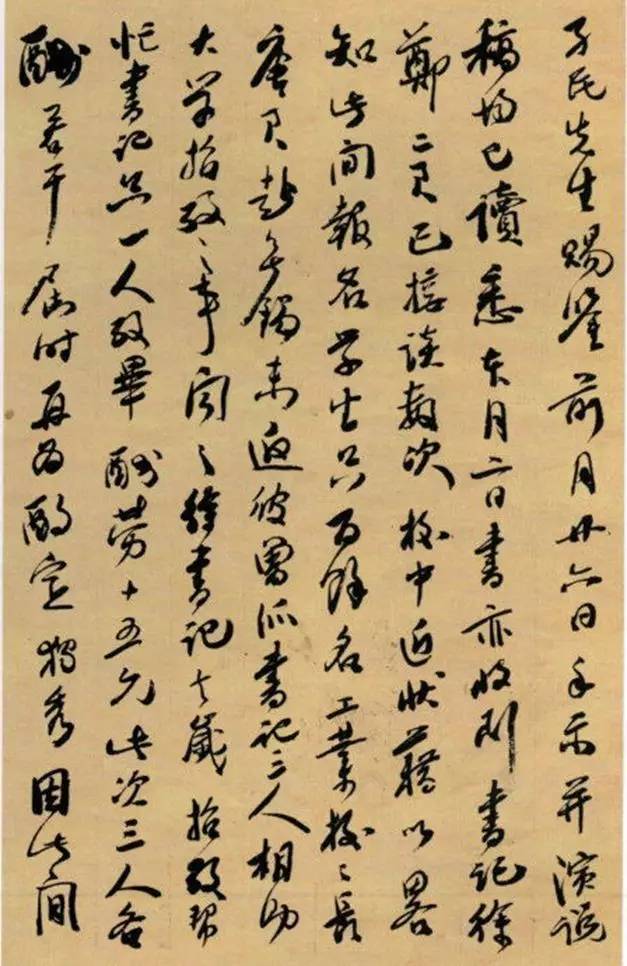 孑民先生賜鑒前月廿六日手示并演說
稿均已讀悉本月二日書亦收到書記徐
鄭二君已接談數次校中近狀藉以略
知此間報名学生只百餘名工業校校長
唐君赴無錫未返彼曾派書記二人相助
大学招考之事聞之徐書記去歲招考幫
忙書記只一人考畢酬勞十五元此次三人各
酬若干屆時再為酌定独秀因此間